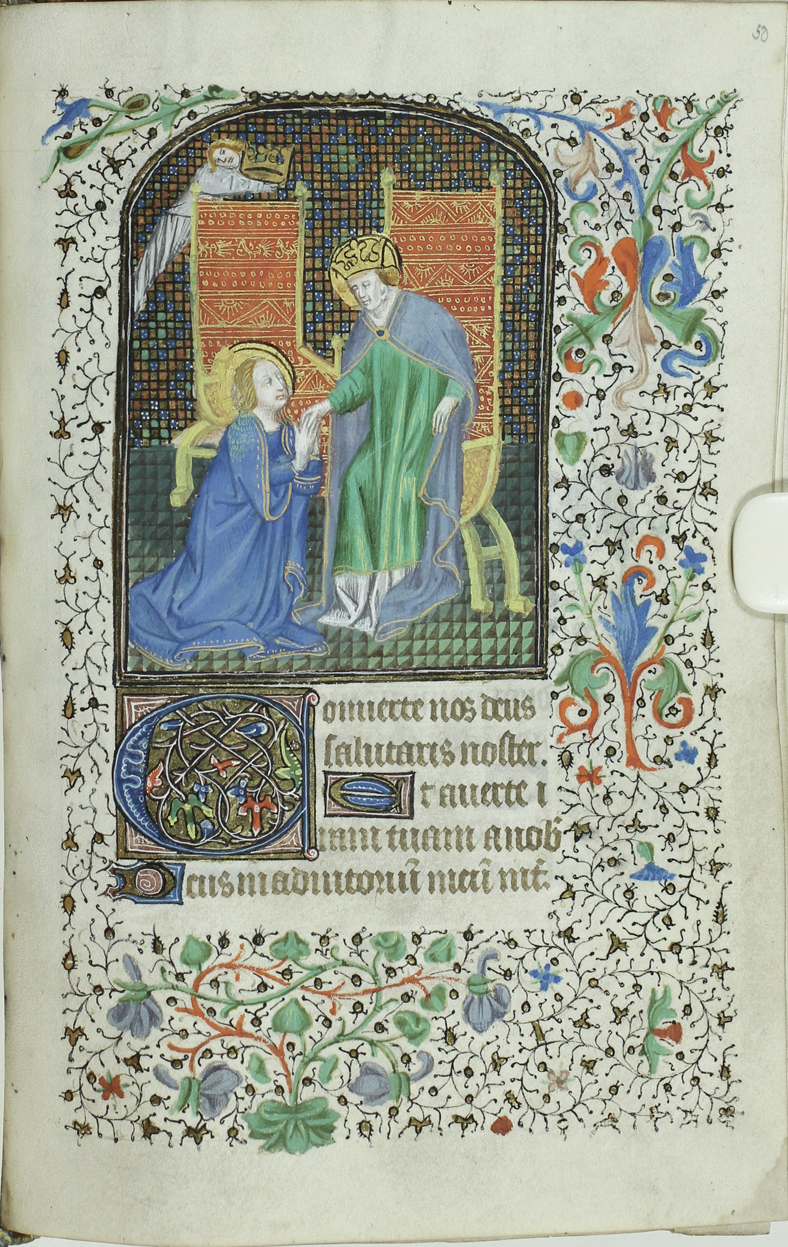 50
Conuerte nos deus
salutaris noster.
Et auerte i
ram tuam a nob̄
Deus in adiutoriū meū int̄.